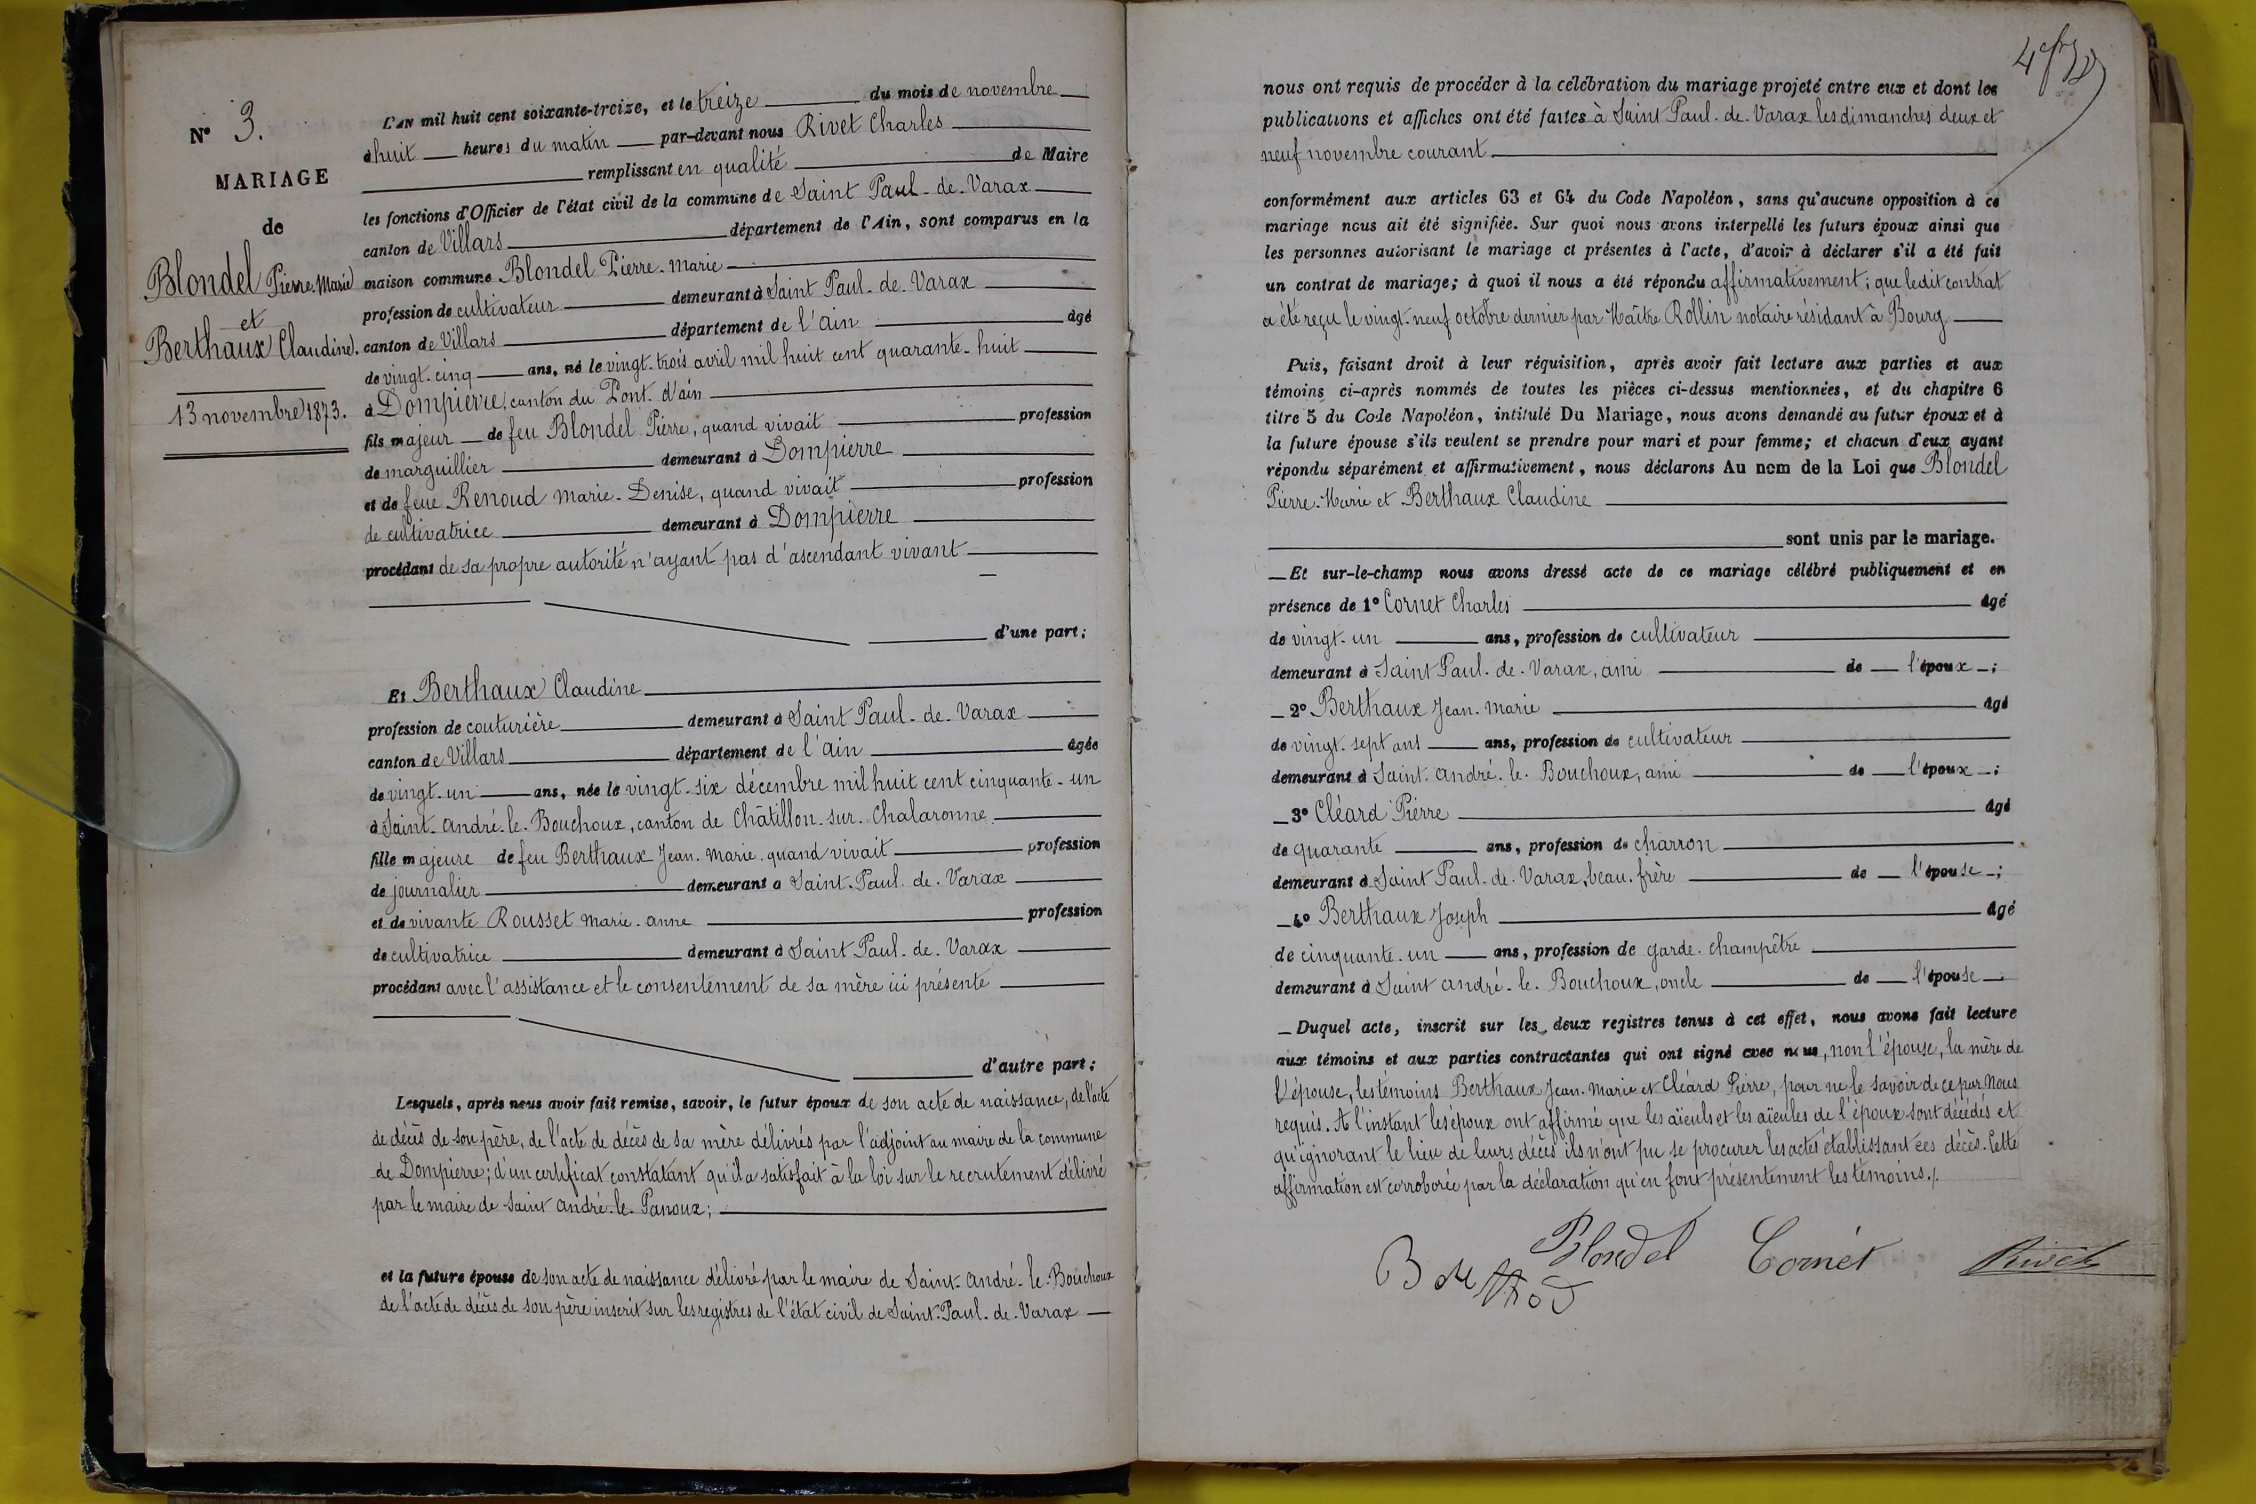 N° 3.
MARIAGE
de
Blondel Pierre-Marie
et
Berthaux Claudine.
13 novembre 1873.
L'AN mil huit cent soixante-treize, et le treize du mois de novembre
à huit heures du matin par-devant nous Rivet Charles
remplissant en qualité de Maire
les fonctions d'Officier de l'état civil de la commune de Saint Paul-de-Varax
canton de Villars département de l'Ain, sont comparus en la
maison commune Blondel Pierre-Marie
profession de cultivateur demeurant à Saint Paul-de-Varax
canton de Villars département de l'Ain âgé
de vingt-cinq ans, né le vingt-trois avril mil huit cent quarante-huit
à Dompierre, canton du Pont-d'ain
fils majeur de feu Blondel Pierre, quand vivait profession
de marguillier demeurant à Dompierre
et de feue Renoud Marie-Denise, quand vivait profession
de cultivatrice demeurant à Dompierre
procédant de sa propre autorité n'ayant pas d'ascendant vivant
d'une part;
Et Berthaux Claudine
profession de couturière demeurant à Saint Paul-de-Varax
canton de Villars département de l'Ain âgée
de vingt-un ans, née le vingt-six décembre mil huit cent cinquante-un
à Saint-André-le-Bouchoux, canton de Châtillon-sur-Chalaronne
fille majeure de feu Berthaux Jean-Marie quand vivait profession
de journalier demeurant à Saint-Paul-de-Varax
et de vivante Rousset Marie-Anne profession
de cultivatrice demeurant à Saint Paul-de-Varax
procédant avec l'assistance et le consentement de sa mère ici présente
d'autre part;
Lesquels, après nous avoir fait remise, savoir, le futur époux de son acte de naissance, de l'acte
de décès de son père, de l'acte de décès de sa mère délivrés par l'adjoint au maire de la commune
de Dompierre; d'un certificat constatant qu'il a satisfait à la loi sur le recrutement délivré
par le maire de Saint André-le-Panoux;
et la future épouse de son acte de naissance délivré par le maire de Saint-André-le-Bouchoux
de l'acte de décès de son père inscrit sur les registres de l'état civil de Saint-Paul-de-Varax
nous ont requis de procéder à la célébration du mariage projeté entre eux et dont les
publications et affiches ont été faites à Saint Paul-de-Varax les dimanches deux et
neuf novembre courant
conformément aux articles 63 et 64 du Code Napoléon, sans qu'aucune opposition à ce
mariage nous ait été signifiée. Sur quoi nous avons interpellé les futurs époux ainsi que
les personnes autorisant le mariage et présentes à l'acte, d'avoir à déclarer s'il a été fait
un contrat de mariage; à quoi il nous a été répondu affirmativement; que ledit contrat
a été reçu le vingt-neuf octobre dernier par Maître Rollin notaire résidant à Bourg
Puis, faisant droit à leur réquisition, après avoir fait lecture aux parties et aux
témoins ci-après nommés de toutes les pièces ci-dessus mentionnées, et du chapitre 6
titre 5 du Code Napoléon, intitulé Du Mariage, nous avons demandé au futur époux et à
la future épouse s'ils veulent se prendre pour mari et pour femme; et chacun d'eux ayant
répondu séparément et affirmativement, nous déclarons Au nom de la Loi que Blondel
Pierre-Marie et Berthaux Claudine
sont unis par le mariage.
Et sur-le-champ nous avons dressé acte de ce mariage célébré publiquement et en
présence de 1° Cornet Charles âgé
de vingt-un ans, profession de cultivateur
demeurant à Saint Paul-de-Varax, ami de l'époux;
2° Berthaux Jean-Marie âgé
de vingt-sept ans ans, profession de cultivateur
demeurant à Saint-André-le-Bouchoux, ami de l'époux;
3° Cléard Pierre âgé
de quarante ans, profession de charron
demeurant à Saint Paul-de-Varax, beau-frère de l'épouse;
4° Berthaux Joseph âgé
de cinquante-un ans, profession de garde-champêtre
demeurant à Saint André-le-Bouchoux, oncle de l'épouse
Duquel acte, inscrit sur les deux registres tenus à cet effet, nous avons fait lecture
aux témoins et aux parties contractantes qui ont signé avec nous, non l'épouse, la mère de
l'épouse, les témoins Berthaux Jean-Marie et Cléard Pierre, pour ne le savoir de ce par Nous
requis. A l'instant les époux ont affirmé que les aïeuls et les aïeules de l'époux sont décédés et
qu'ignorant le lieu de leurs décès ils n'ont pu se procurer les actes établissant ces décès. Cette
affirmation est corroborée par la déclaration qu'en font présentement les témoins./.
Blondel Cornet Rivet